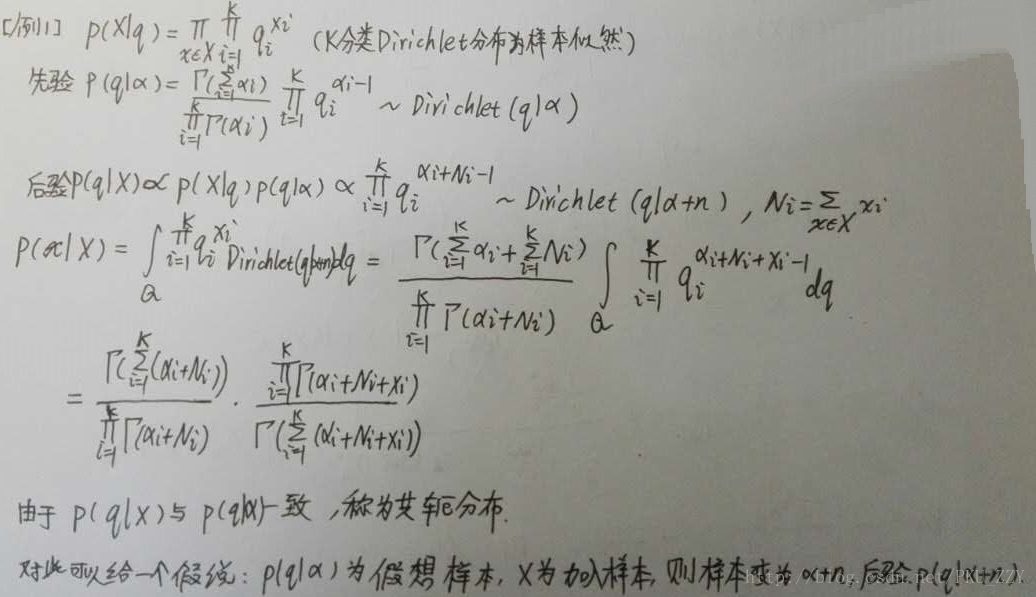 [例1] P(X|q) = ∏_{x∈X} ∏_{i=1}^{K} q_i^{x_i} (K分类Dirichlet分布为样本似然)
先验 P(q|α) = Γ(∑_{i=1}^{K} α_i) / ∏_{i=1}^{K} Γ(α_i) ∏_{i=1}^{K} q_i^{α_i-1} ~ Dirichlet(q|α)
后验P(q|X) ∝ P(X|q)P(q|α) ∝ ∏_{i=1}^{K} q_i^{α_i+N_i-1} ~ Dirichlet(q|α+n), N_i = ∑_{x∈X} x_i
P(x|X) = ∫_Q ∏_{i=1}^{K} q_i^{x_i} Dirichlet(q|α+n)dq = Γ(∑_{i=1}^{K} α_i + ∑_{i=1}^{K} N_i) / ∏_{i=1}^{K} Γ(α_i+N_i) ∫_Q ∏_{i=1}^{K} q_i^{α_i+N_i+x_i-1} dq
= Γ(∑_{i=1}^{K} (α_i+N_i)) / ∏_{i=1}^{K} Γ(α_i+N_i) · ∏_{i=1}^{K} Γ(α_i+N_i+x_i) / Γ(∑_{i=1}^{K} (α_i+N_i+x_i))
由于 P(q|X)与 P(q|α)一致,称为共轭分布.
对此可以给一个假说: P(q|α)为假想样本, X为加入样本, 则样本变为 α+n, 后验 P(q|α+n).
http://blog.csdn.net/PKU_ZZY